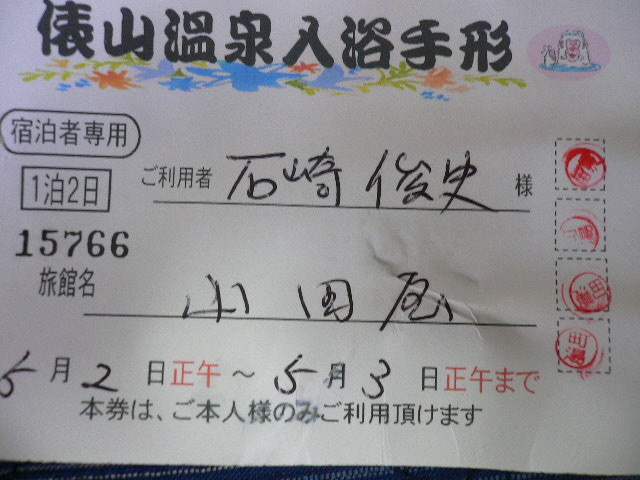 俵山温泉入浴手形
宿泊者専用
1泊2日
ご利用者 石崎 俊史 様
15766
旅館名
小田屋
5月2日正午～5月3日正午まで
本券は、ご本人様のみご利用頂けます